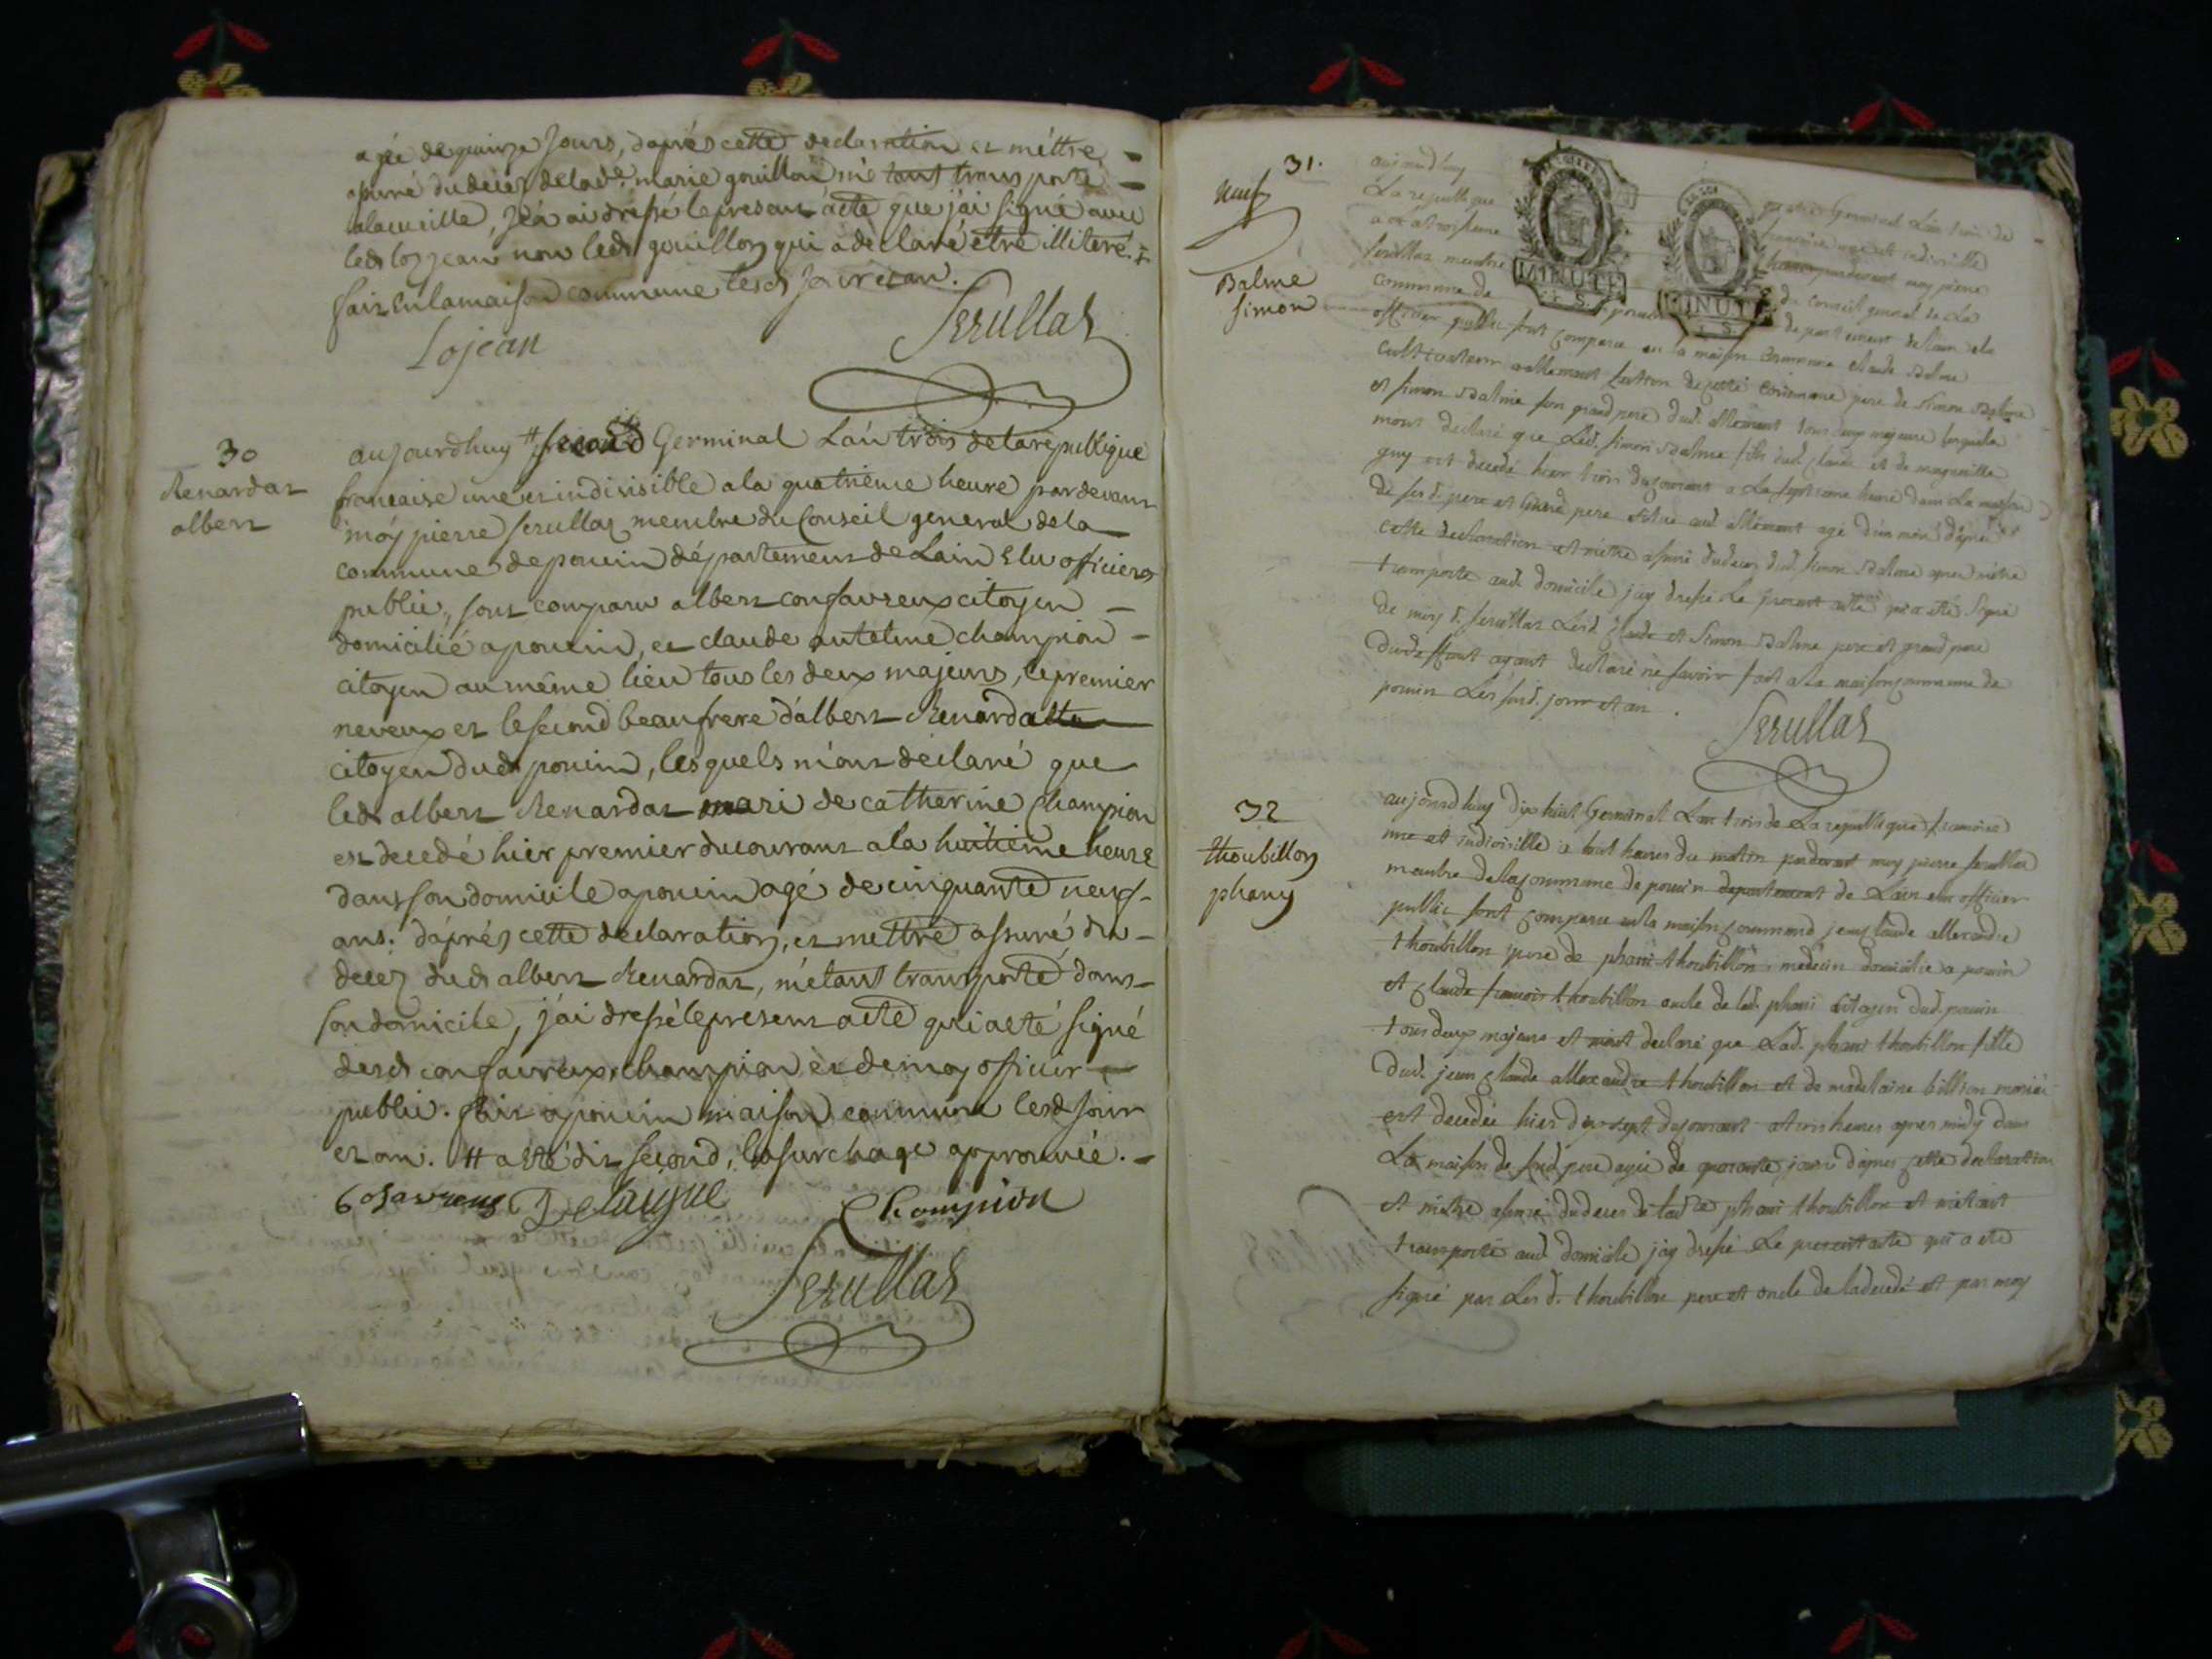 agée de quinze Jours, daprès cette declaration et m'être
assuré du decez de lade. marie gouillon m'é tant transporté
alacueille, J'ai dressé le present acte que j'ai signé avec
led lojean non led gouillon qui a declaré être illiteré.
fait en la maison commune lesd Jour et an.
Lojean Serullaz
30
Renardat
albert
aujourdhuy # second Germinal Lan trois de la republique
francaise une et indivisible a la quatrième heure pardevant
moy pierre serullaz membre du Conseil general de la
commune de poncin département de Lain Elu officier
public, sont comparu albert confavreux citoyen
domicilié a poncin, et claude antelme champion
citoyen au même lieu tous les deux majeurs, le premier
neveux et le second beaufrere d'albert Renardat
citoyen dud poncin, les quels m'ont déclaré que
led albert Renardat mari de catherine Champion
est decedé hier premier du courant a la huitième heure
dans son domicile a poncin agé de cinquante neuf
ans. d'après cette declaration, et m'ettre assuré du
decez dud albert Renardat, m'étant transporté dans
son domicile, j'ai dressé le present acte qui a eté signé
desd confavreux, champion et de moy officier
public. fait a poncin maison commune lesd jour
et an. # a eté dit second, la surchage approuvée.
Champion
Serullaz
31.
neuf
Balme
simon
aujourdhuy germinal Lan trois de
La republique francoise une et indivisible
a La troisieme heure pardevant moy pierre
serullaz membre du conseil general de La
commune de poncin departement de lain elu
officier public sont comparu en la maison commune claude Balme
cultivateur allement section de cette commune pere de simon Balme
et simon Balme son grand pere dud. allement tous deux majeurs lesquels
mont declaré que Led. simon Balme fils dud. claude et de
guy est decedé hier trois du courant a La septieme heure dans La maison
de sesd. pere et grand pere située aud allement agé dun mois d'apres
cette declaration et metre assuré du deces dud. simon Balme apres m'etre
transporté aud. domicile jay dressé Le present acte qui a eté signé
de moy d. serullaz Lesd. claude et Simon Balme pere et grand pere
dud. ayant declaré ne savoir fait a la maison commune de
poncin Les susd. jour et an.
Serullaz
32
thoubillon
phany
aujourdhuy dix huit Germinal Lan trois de La republique francoise
une et indivisible a huit heures du matin pardevant moy pierre serullaz
membre de la commune de poncin departement de Lain elu officier
public sont comparu en la maison commune jean claude allexandre
thoubillon pere de phani thoubillon medecin domicilié a poncin
et claude francois thoubillon oncle de lad. phani citoyen dud. poncin
tous deux majeurs et mont declaré que Lad. phani thoubillon fille
dud. jean claude allexandre thoubillon et de madelaine billion mariés
est decedée hier dix sept du courant a trois heures apres midy dans
La maison de sond pere agée de quarante jours d'apres cette declaration
et m'etre assuré du deces de ladte phani thoubillon et m'etant
transporté aud. domicile jay dressé Le present acte qui a eté
signé par Lesd. thoubillon pere et oncle de la decedé et par moy
MINUTE
MINUTE